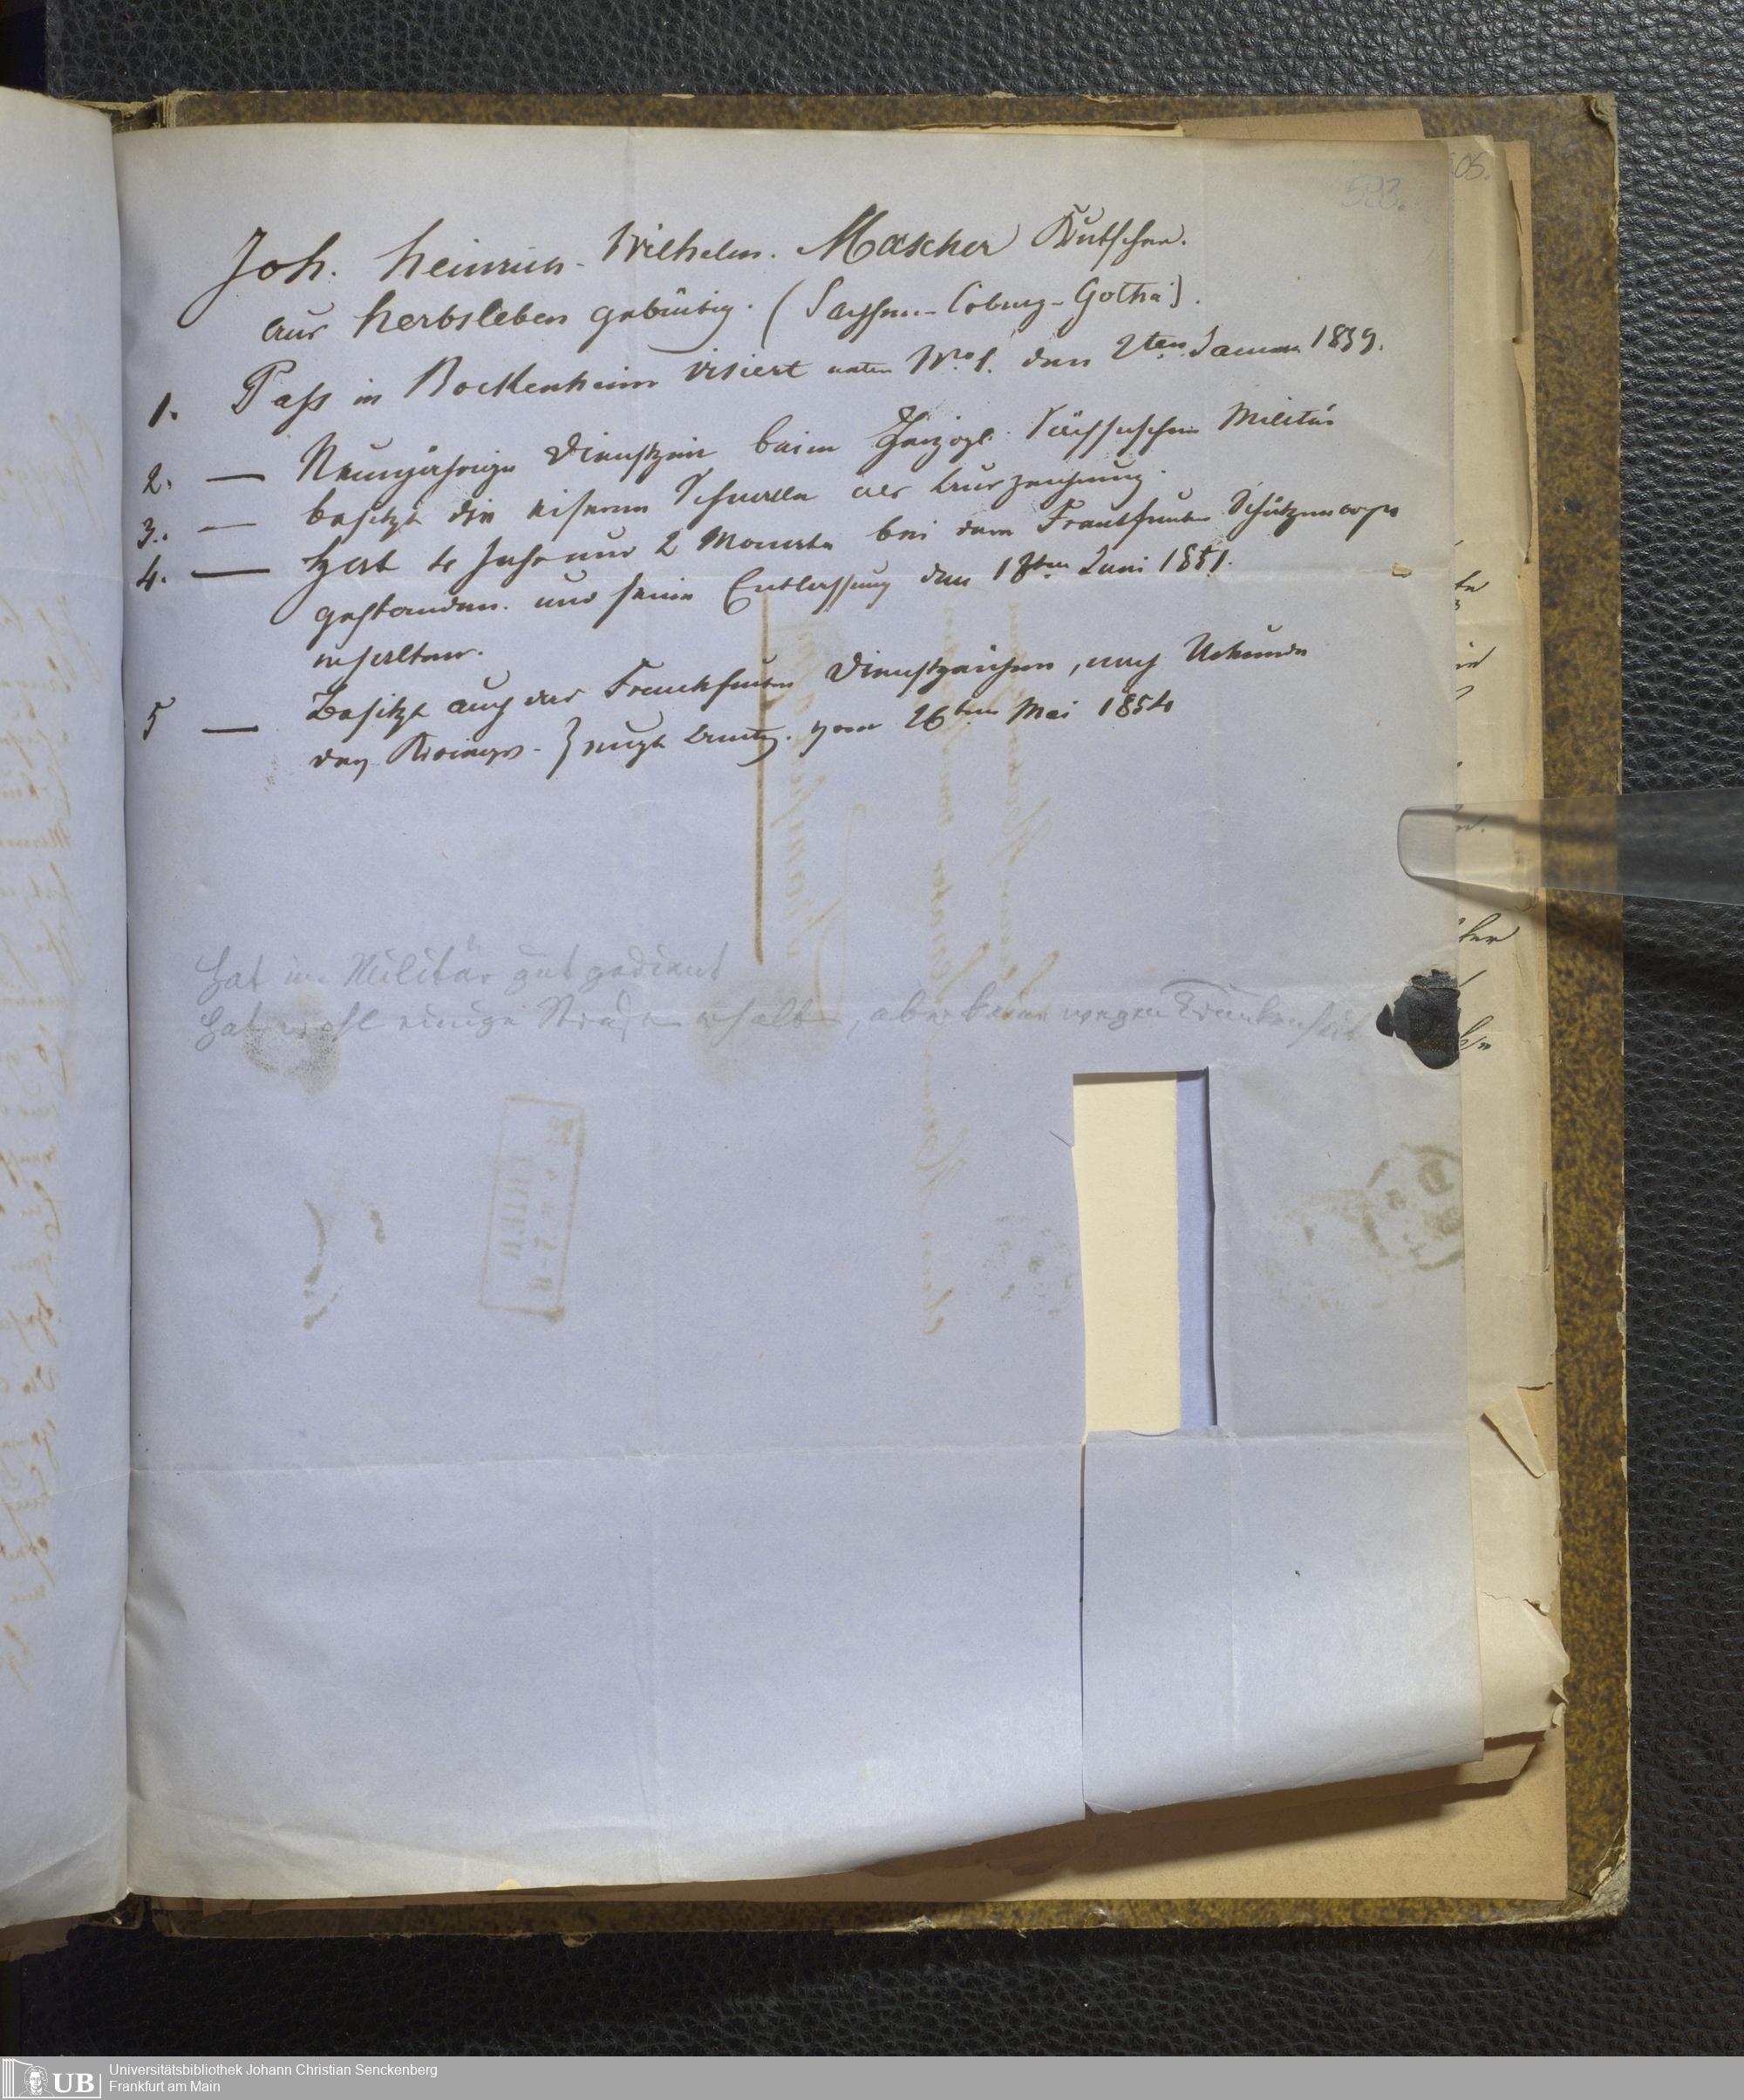 593.
Joh. Heinrich Wilhelm. Mascher Kutscher.
aus Herbsleben gebürtig. (Sachsen-Coburg-Gotha).
1. Paß in Bockenheim visiert unter No. 1. den 2ten Januar 1859.
2. — Neunjährige Dienstzeit beim Herzogl. Sächsischen Militär
3. — besitzt die eiserne Schnalle als Auszeichnung.
4. — Hat 4 Jahr und 2 Monate bei dem Frankfurter Schützencorps
gestanden. und seine Entlassung den 18ten Juni 1851.
erhalten.
5 — Besitzt auch das Frankfurter Dienstzeichen, nach Urkunde
des Kriegs-Zeugh Amts. vom 26ten Mai 1854
Hat im Militär gut gedient
hat wohl einige Strafen erhalten, aber keine wegen Trunkenheit
Universitätsbibliothek Johann Christian Senckenberg
UB Frankfurt am Main